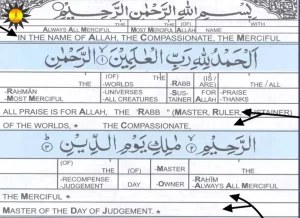 بِسْمِ اللّٰهِ الرَّحْمٰنِ الرَّحِيْمِ
THE THE NAME WITH
ALWAYS ALL MERCIFUL MOST MERCIFUL ALLAH
IN THE NAME OF ALLAH, THE COMPASSIONATE, THE MERCIFUL
اَلْحَمْدُ لِلّٰهِ رَبِّ الْعٰلَمِيْنَ ۝١ الرَّحْمٰنِ
(OF) (OF) (IS/
THE THE -RABB ARE) THE / ALL
-RAHMĀN -WORLDS -SUS- FOR -PRAISE
-MOST MERCIFUL -UNIVERSES TAINER ALLAH -THANKS
-ALL CREATURES
ALL PRAISE IS FOR ALLAH, THE 'RABB * (MASTER, RULER, SUSTAINER)
OF THE WORLDS, * THE COMPASSIONATE,
الرَّحِيْمِ ۝٢ مٰلِكِ يَوْمِ الدِّيْنِ ۝٣
(OF) (OF)
THE -MASTER THE
-RECOMPENSE DAY -OWNER -RAHĪM
-JUDGEMENT -ALWAYS ALL MERCIFUL
THE MERCIFUL *
MASTER OF THE DAY OF JUDGEMENT. *